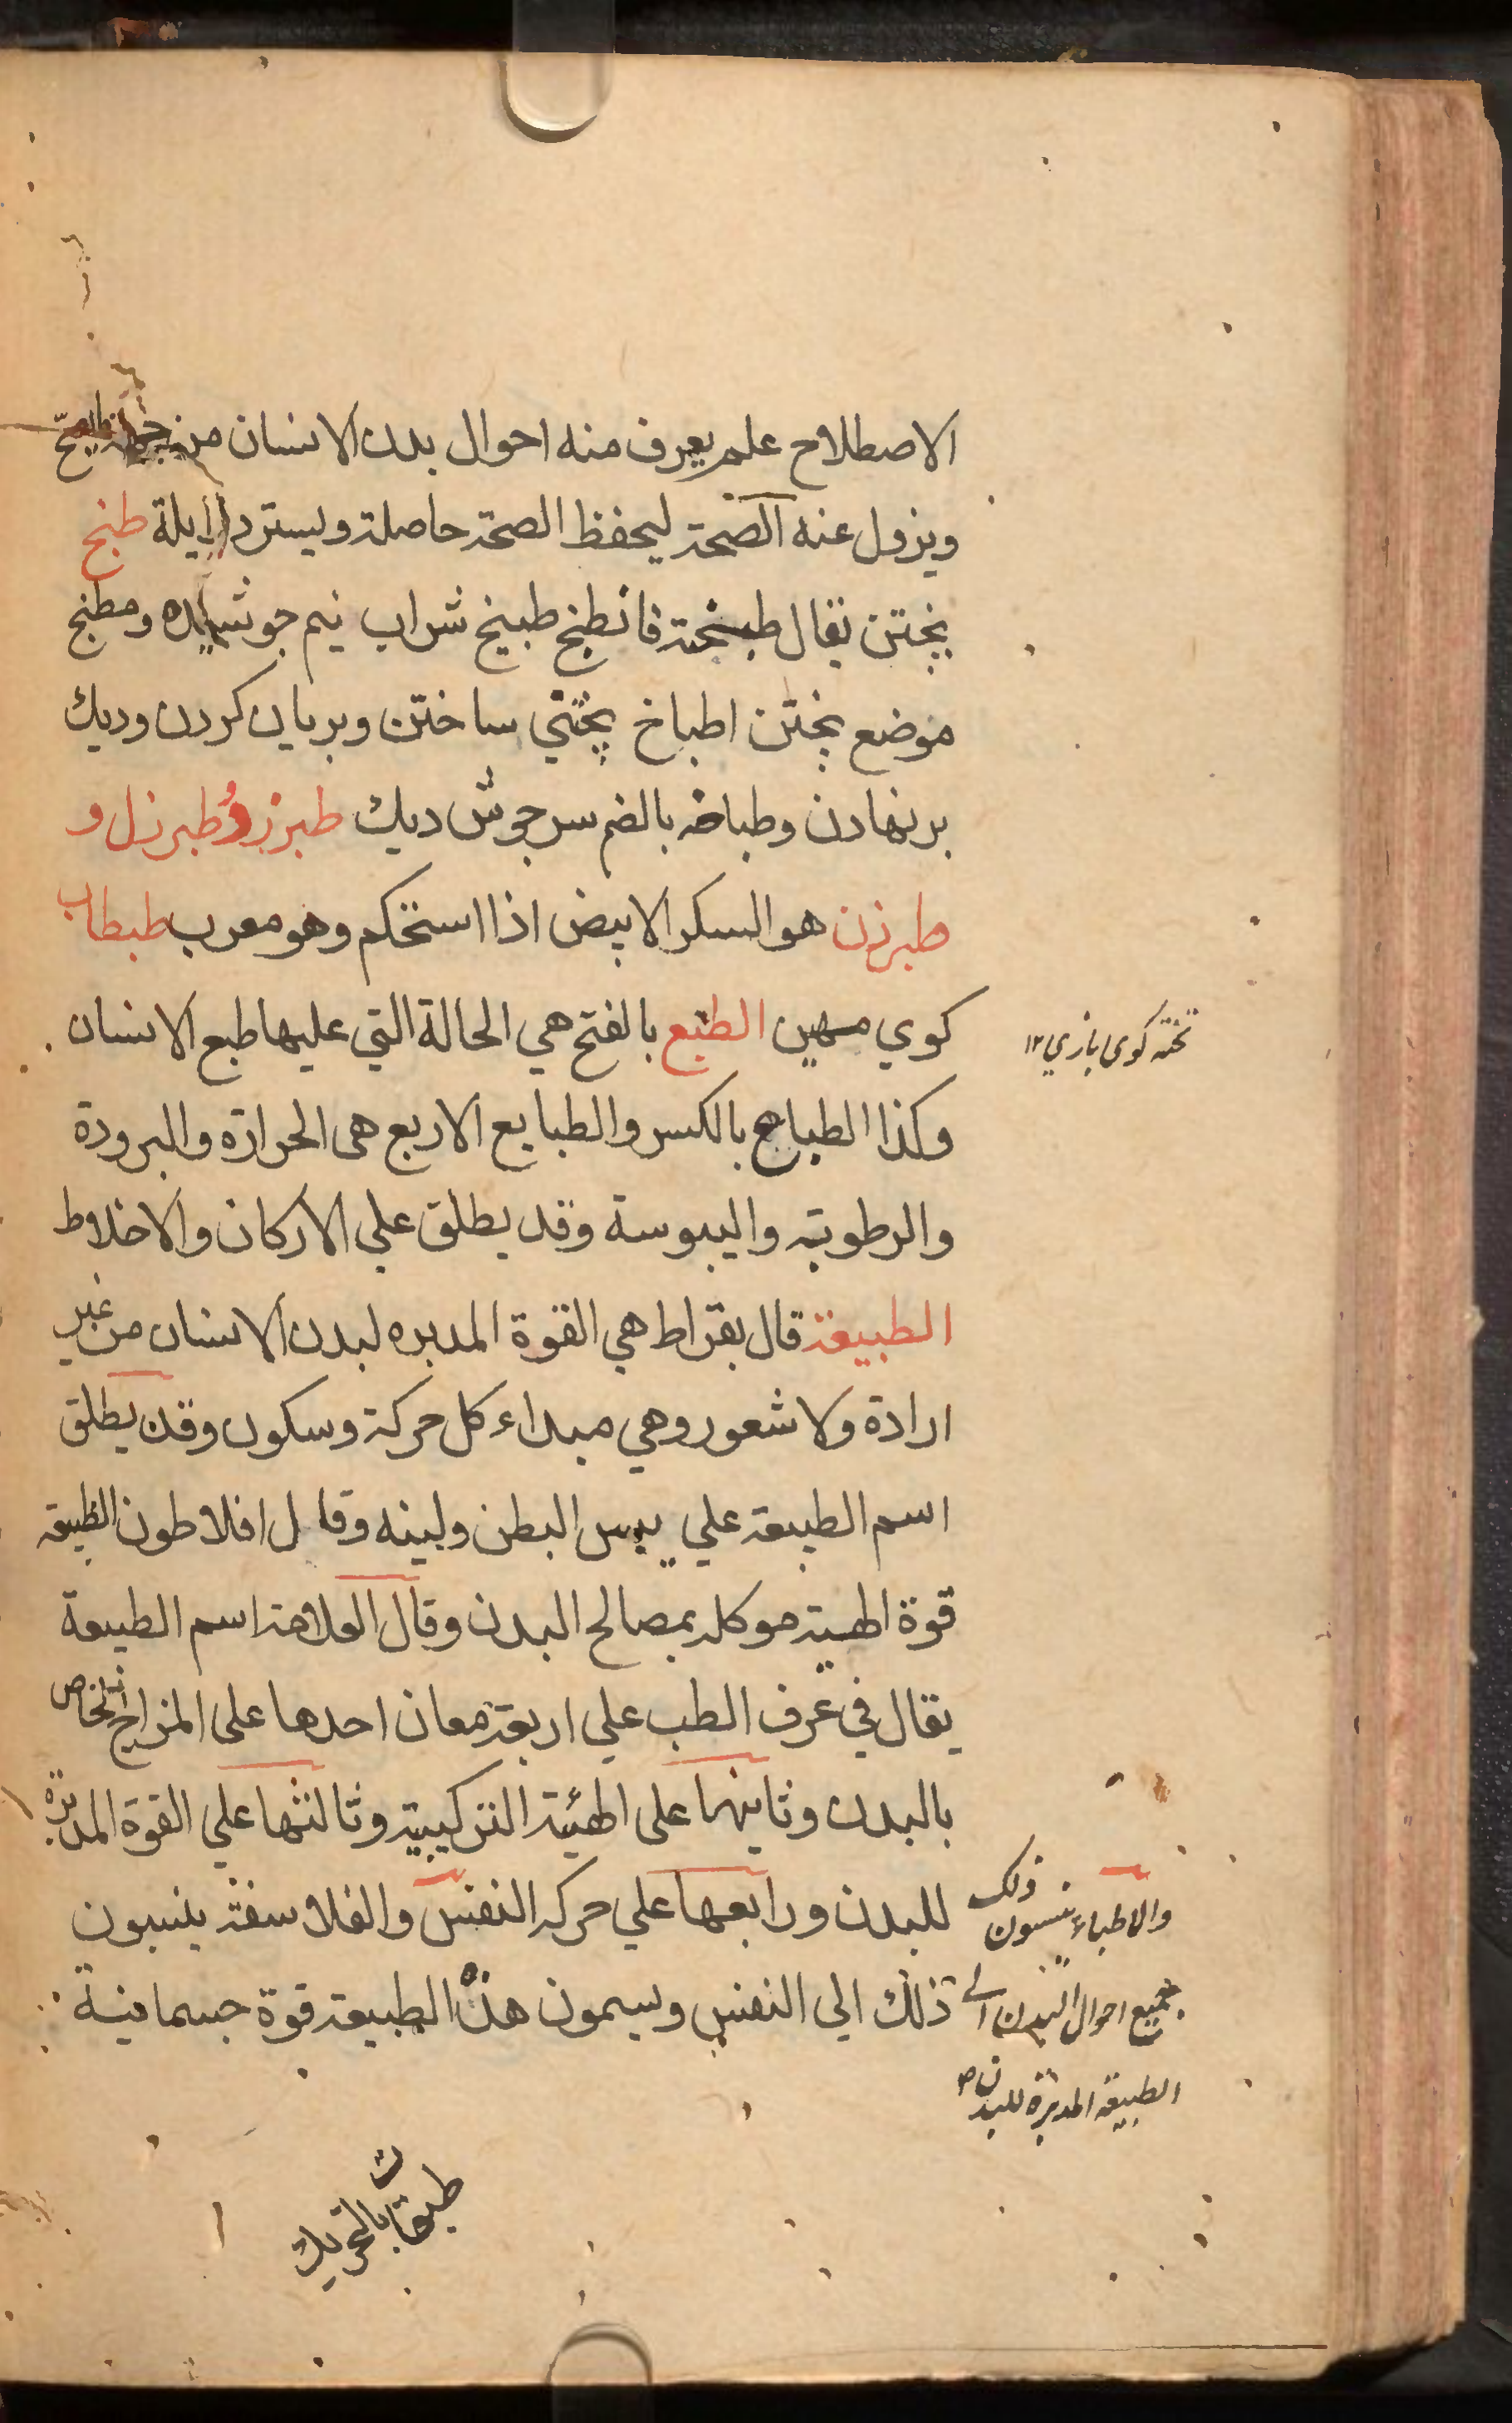 الاصطلاح علم يعرف منه احوال بدن الانسان من جهة ما يصح
ويزول عنه الصحة ليحفظ الصحة حاصلة ويسترد زايلة طبخ
پختن يقال طبخته فانطبخ طبيخ شراب نيم جوشيده ومطبخ
موضع پختن اطباخ پختني ساختن وبريان كردن وديك
برنهادن وطباخه بالضم سرجوش ديك طبرزد طبرزل و
طبرزن هو السكر الابيض اذا استحكم وهو معرب طبطاب
كوي مهين الطبع بالفتح هي الحالة التي عليها طبع الانسان
تخته كوى بازي ١٢
وكذا الطباع بالكسر والطبايع الاربع هى الحرارة والبرودة
والرطوبة واليبوسة وقد يطلق علي الاركان والاخلاط
الطبيعة قال بقراط هي القوة المدبره لبدن الانسان من غير
ارادة ولا شعور وهي مبداء كل حركة وسكون وقد يطلق
اسم الطبيعة علي يبس البطن ولينه وقال افلاطون الطبيعة
قوة الهية موكله بمصالح البدن وقال العلامة اسم الطبيعة
يقال في عرف الطب علي اربعة معان احدها على المزاج الخاص
بالبدن وثانيها على الهيئة التركيبية وثالثها علي القوة المدبرة
للبدن ورابعها علي حركه النفس والفلاسفة ينسبون
ذلك الي النفس ويسمون هذه الطبيعة قوة جسمانية
والاطباء ينسبون ذلك
جميع احوال البدن الے
الطبيعة المدبرة للبدن ص
طبقات بالتحريك